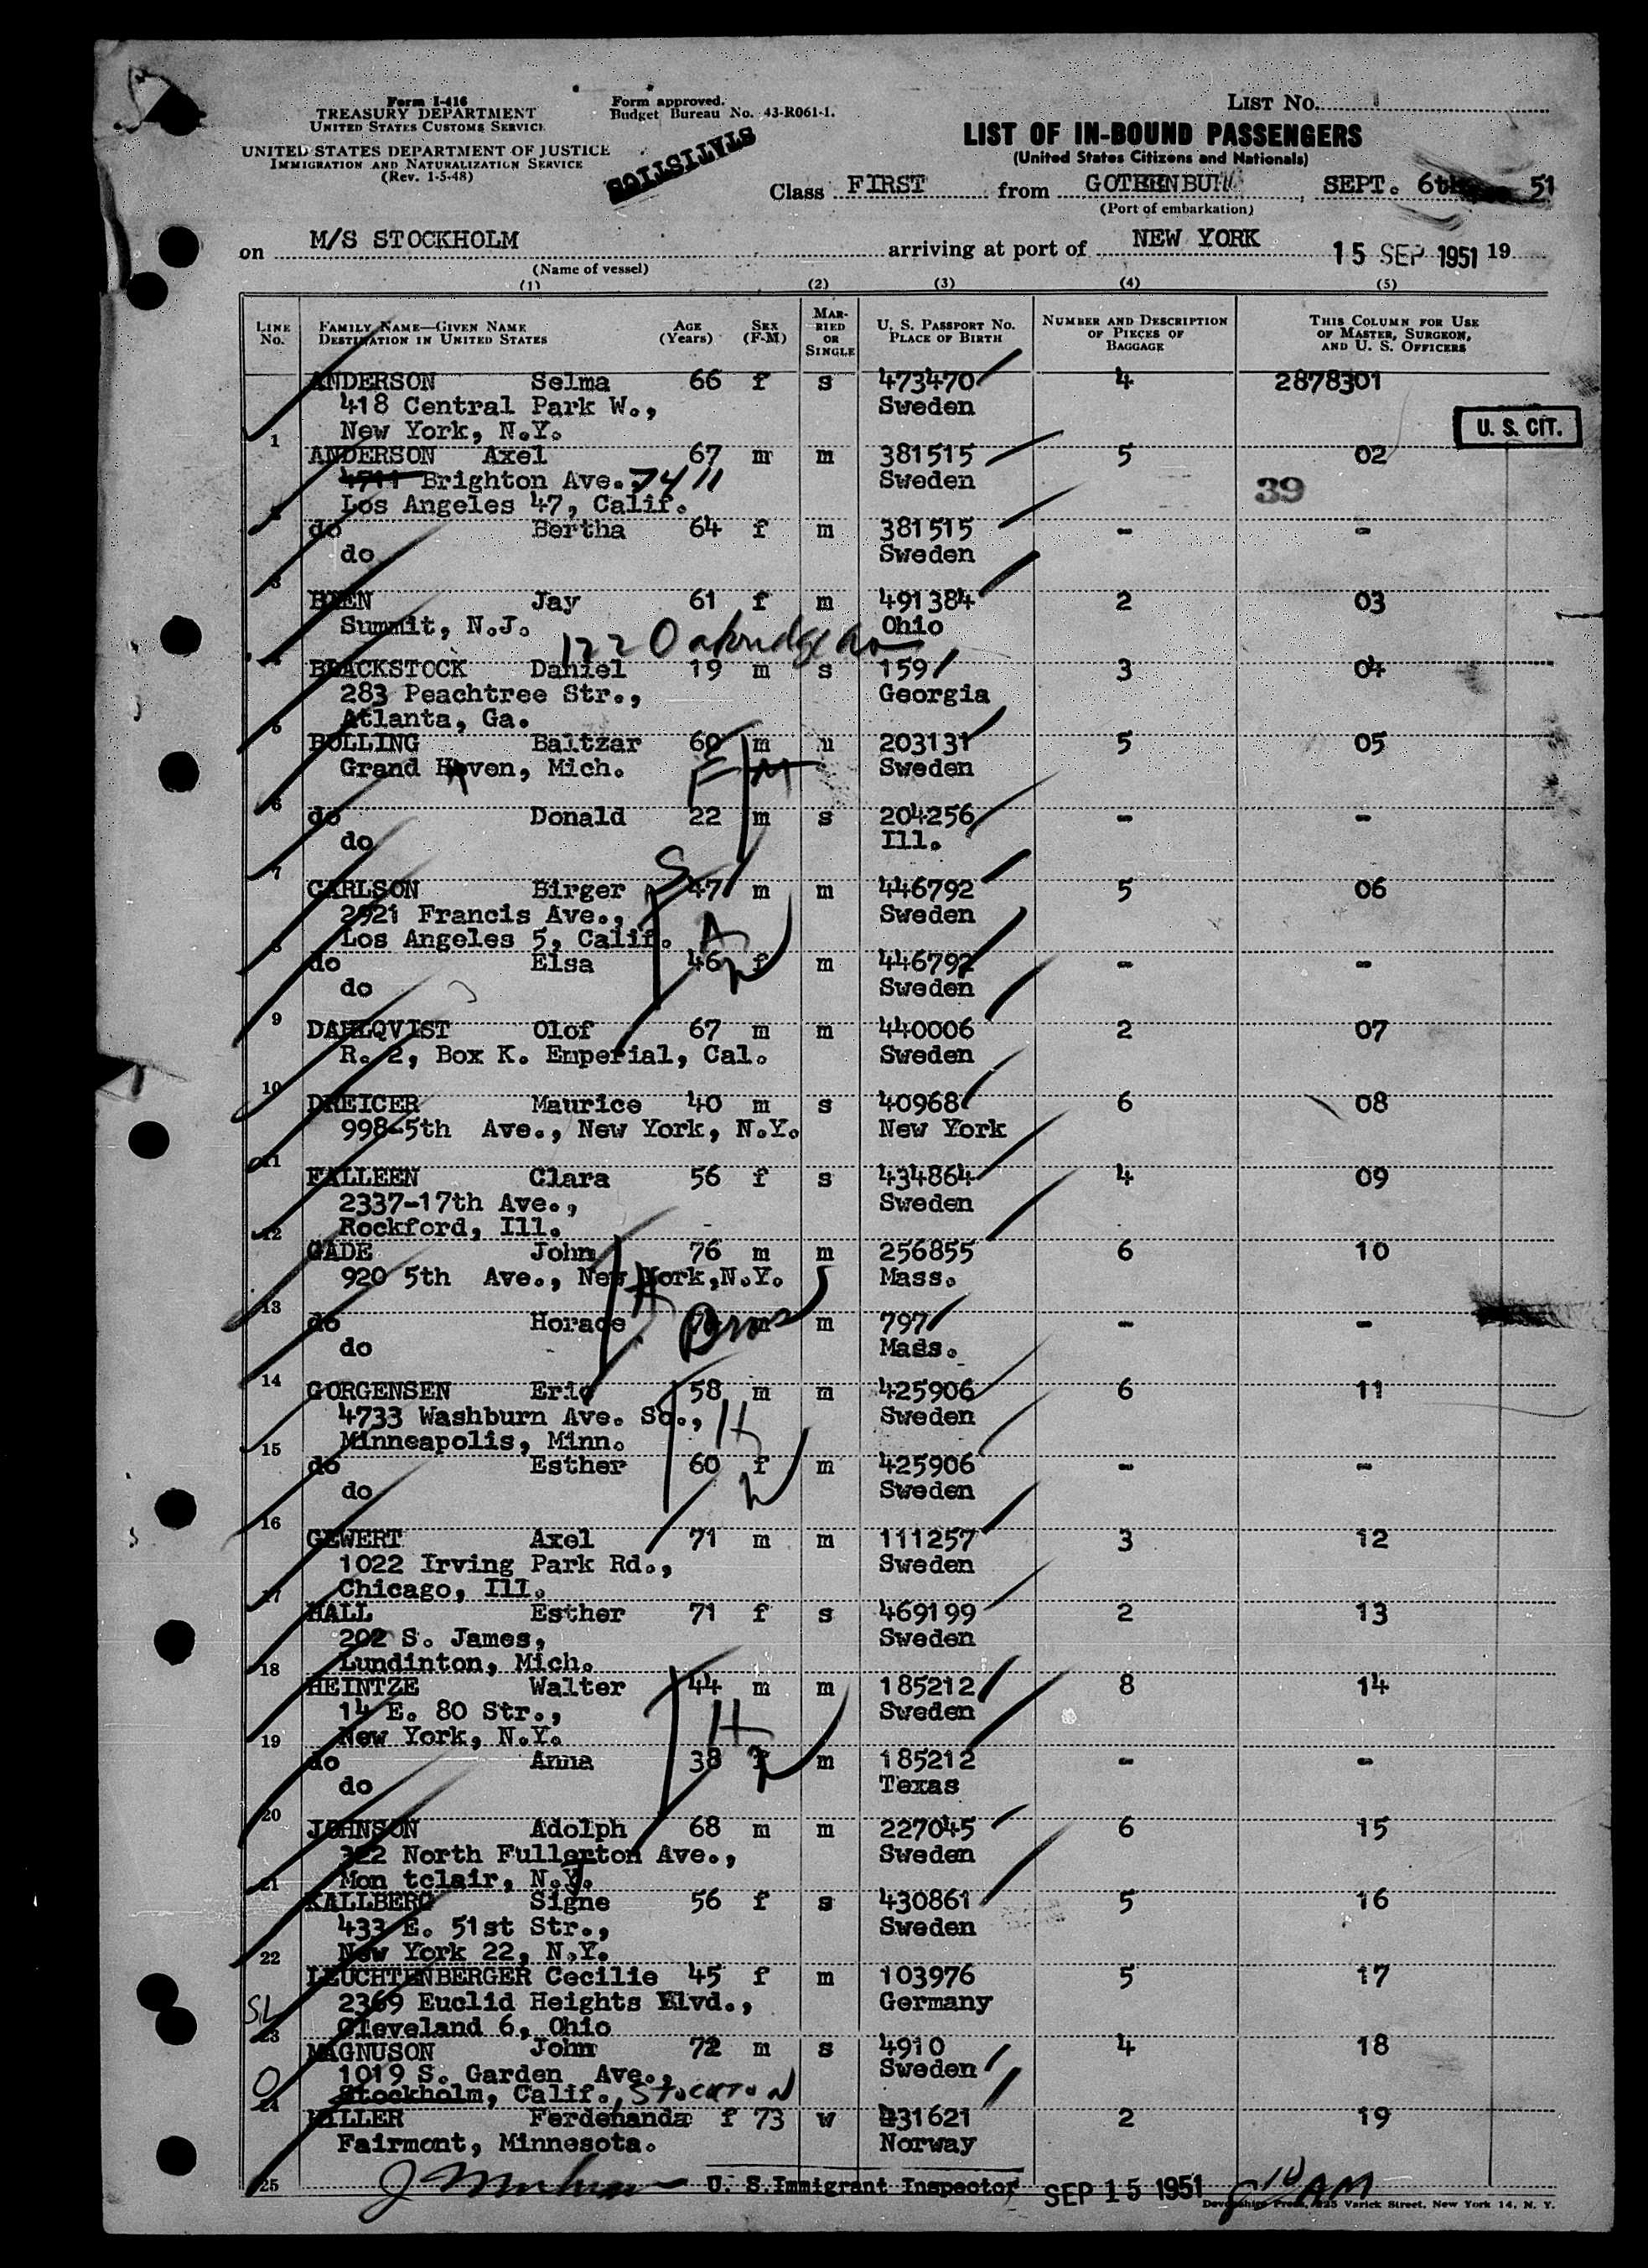 Form I-416
TREASURY DEPARTMENT
UNITED STATES CUSTOMS SERVICE
UNITED STATES DEPARTMENT OF JUSTICE
IMMIGRATION AND NATURALIZATION SERVICE
(Rev. 1-5-48)
Form approved.
Budget Bureau No. 43-R061-1.
STATISTICS
LIST NO.
LIST OF IN-BOUND PASSENGERS
(United States Citizens and Nationals)
Class FIRST from SEPT. 6th 51
(Port of embarkation)
on M/S STOCKHOLM arriving at port of NEW YORK 15 SEP 1951 19
(Name of vessel)
(1) (2) (3) (4) (5)
LINE NO. FAMILY NAME—GIVEN NAME DESTINATION IN UNITED STATES AGE (Years) SEX (F-M) MARRIED OR SINGLE U. S. PASSPORT NO. PLACE OF BIRTH NUMBER AND DESCRIPTION OF PIECES OF BAGGAGE THIS COLUMN FOR USE OF MASTER, SURGEON, AND U. S. OFFICERS
ANDERSON Selma 66 f s 473470 4 2878301
418 Central Park W., Sweden
U. S. CIT.
1 New York, N.Y.
ANDERSON Axel 67 m m 381515 5 02
4711 Brighton Ave. 7411 Sweden 39
2 Los Angeles 47, Calif.
do Bertha 64 f m 381515 - -
do Sweden
3
BIEN Jay 61 f m 491384 2 03
Summit, N.J. 122 Oakridge Av Ohio
4
BLACKSTOCK Daniel 19 m s 159 3 04
283 Peachtree Str., Georgia
5 Atlanta, Ga.
BOLLING Baltzar 60 m 203131 5 05
Grand Haven, Mich. F M Sweden
6
do Donald 22 m s 204256 - -
do S Ill.
7
CARLSON Birger 47 m m 446792 5 06
2921 Francis Ave., Sweden
8 Los Angeles 5, Calif.
do Elsa 46 f m 446792 - -
do Sweden
9
DAHLQVIST Olof 67 m m 440006 2 07
R. 2, Box K. Emperial, Cal. Sweden
10
DREICER Maurice 40 m s 40968 6 08
998-5th Ave., New York, N.Y. New York
11
FALLEEN Clara 56 f s 434864 4 09
2337-17th Ave., Sweden
12 Rockford, Ill.
GADE John 76 m m 256855 6 10
920 5th Ave., New York,N.Y. Mass.
13
do Horace m m 797 - -
do Bros Mass.
14
GORGENSEN Eric 58 m m 425906 6 11
4733 Washburn Ave. So., H Sweden
15 Minneapolis, Minn.
do Esther 60 f m 425906 - -
do W Sweden
16
GEWERT Axel 71 m m 111257 3 12
1022 Irving Park Rd., Sweden
17 Chicago, Ill.
HALL Esther 71 f s 469199 2 13
202 S. James, Sweden
18 Lundinton, Mich.
HEINTZE Walter 44 m m 185212 8 14
14 E. 80 Str., H Sweden
19 New York, N.Y.
do Anna 38 f m 185212 - -
do W Texas
20
JOHNSON Adolph 68 m m 227045 6 15
322 North Fullerton Ave., Sweden
21 Mon tclair, N.J.
KALLBERG Signe 56 f s 430861 5 16
433 E. 51st Str., Sweden
22 New York 22, N.Y.
LEUCHTENBERGER Cecilie 45 f m 103976 5 17
SL 2369 Euclid Heights Blvd., Germany
23 Cleveland 6, Ohio
MAGNUSON John 72 m s 4910 4 18
O 1019 S. Garden Ave., Sweden
24 Stockholm, Calif., STOCKTON
MILLER Ferdenanda f 73 w 231621 2 19
Fairmont, Minnesota. Norway
25 U. S. Immigrant Inspector SEP 15 1951 AM
Devonshire Press, 225 Varick Street, New York 14, N. Y.